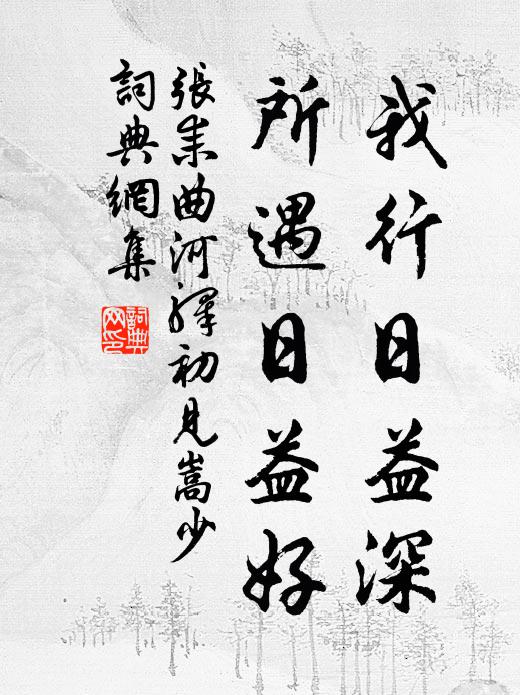 我行日益深
所遇日益好
張耒曲河驛初見嵩少
詞典網集
詞典网印